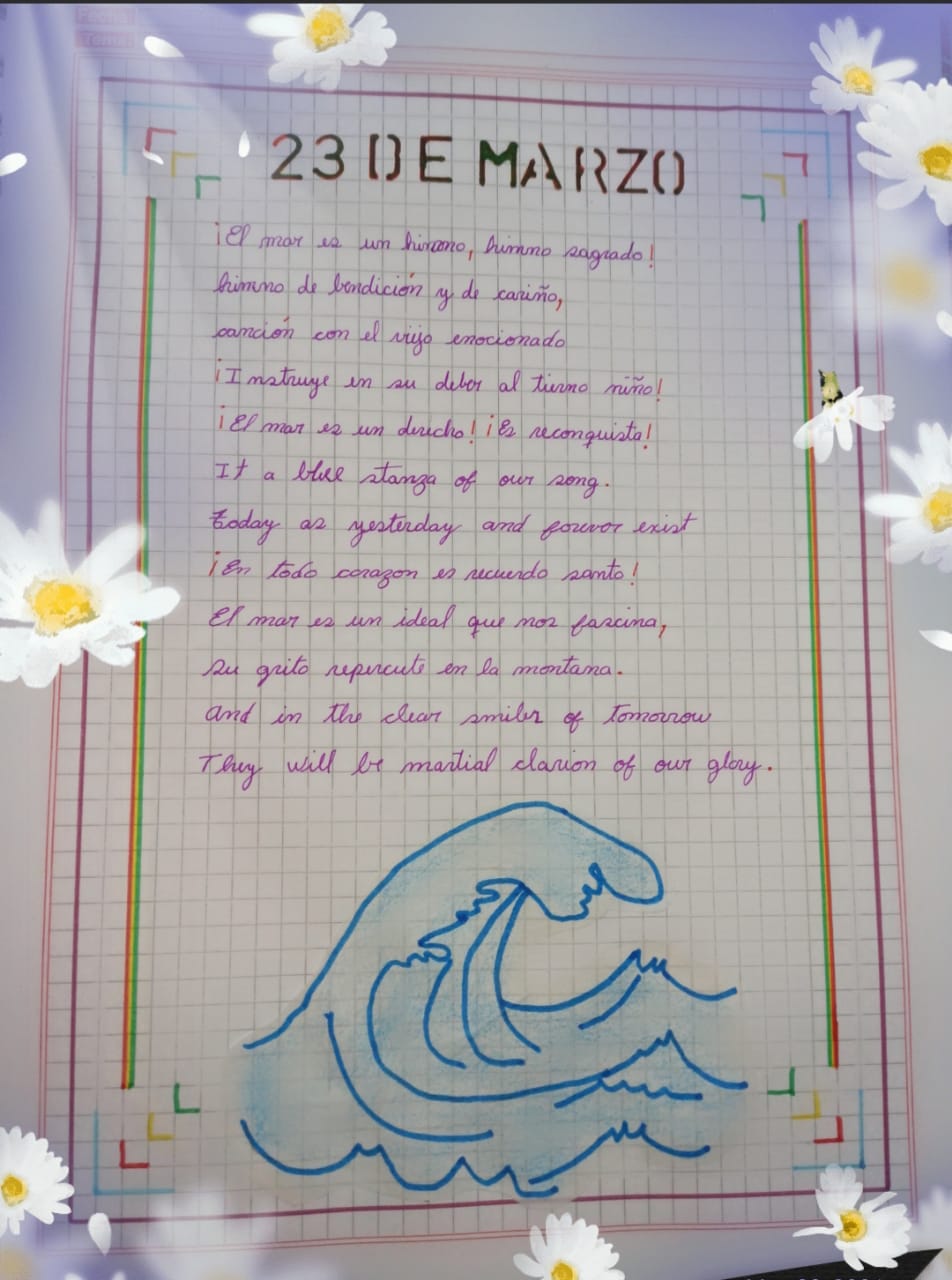 Fecha:
Tema:
23 DE MARZO
¡El mar es un himno, himno sagrado!
himno de bendición y de cariño,
canción con el viejo emocionado
¡Instruye en su deber al tierno niño!
¡El mar es un derecho! ¡Es reconquista!
It a blue stanza of our song.
today as yesterday and forever exist
¡En todo corazon es recuerdo santo!
El mar es un ideal que nos fascina,
su grito repercute en la montana.
and in the clear smiles of tomorrow
They will be martial clarion of our glory.